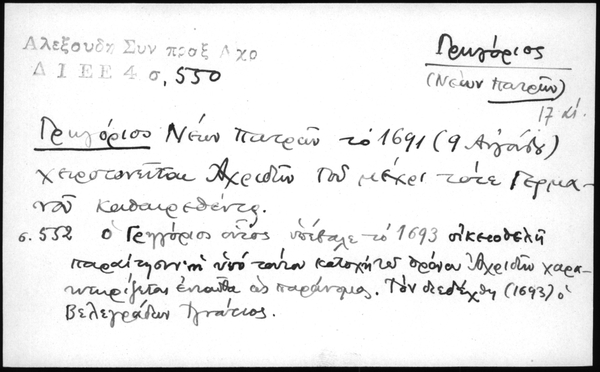 Αλεξουδη Συν πραξ Αχο
Δ Ι Ε Ε 4 σ. 550
Γρηγόριος
(Νέων Πατρῶν)
17 αἰ.
Γρηγόριος Νέων Πατρῶν τό 1691 (9 Αὐγούστου)
χειροτονεῖται Ἀχριδῶν τοῦ μέχρι τότε Γερμα-
νοῦ καθαιρεθέντος.
σ. 552 ὁ Γρηγόριος αὐτός ὑπέβαλε τό 1693 οἰκειοθελῆ
παραίτησιν ἡ ὑπό τούτου κατοχή τοῦ θρόνου Ἀχριδῶν χαρα-
κτηρίζεται ἐνταῦθα ὡς παράνομος. Τόν διεδέχθη (1693) ὁ
Βελεγράδων Ἰγνάτιος.